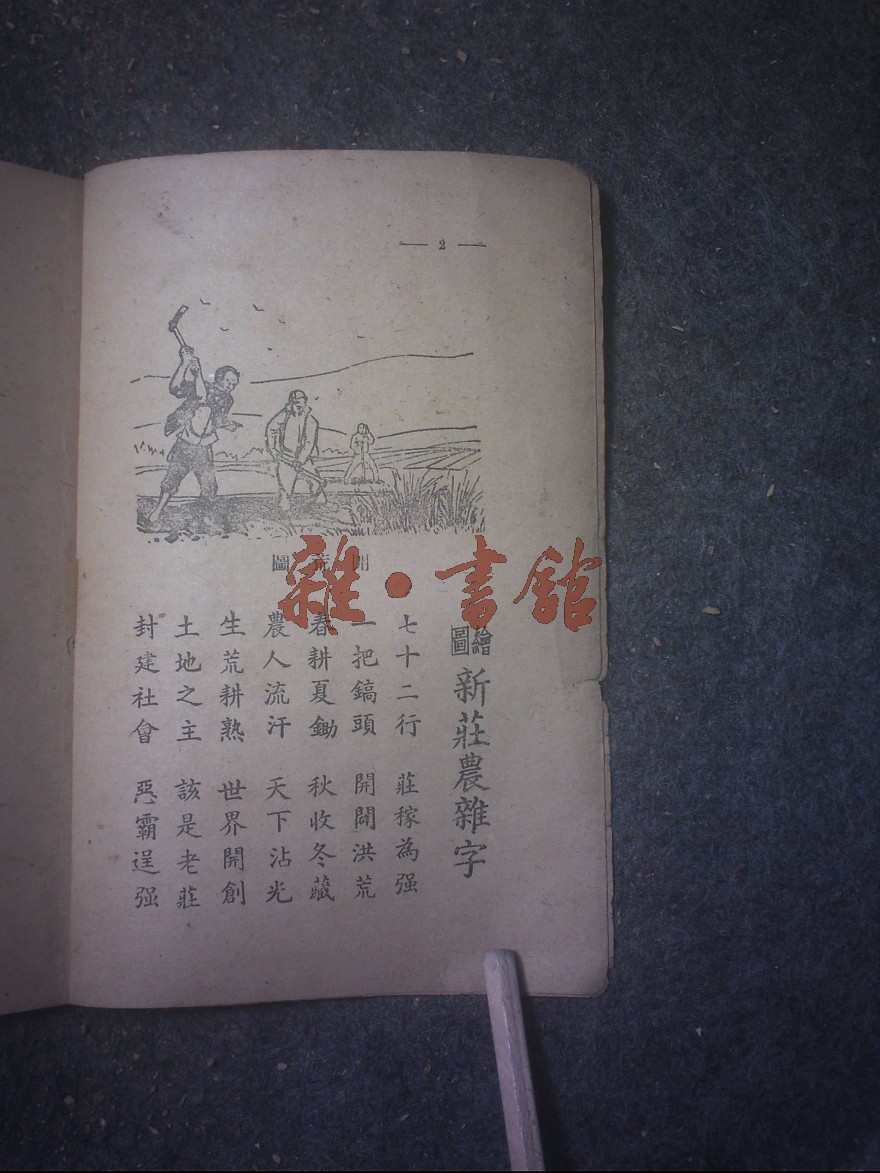 — 2 —
開荒圖
繪圖新莊農雜字
七十二行 莊稼為强
一把鎬頭 開闢洪荒
春耕夏鋤 秋收冬藏
農人流汗 天下沾光
生荒耕熟 世界開創
土地之主 該是老莊
封建社會 惡霸逞强
雜·書館